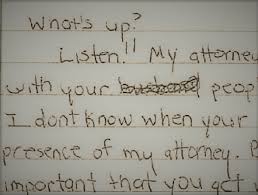 What's up?
Listen!! My attorney
with your peop
I dont know when your
presence of my attorney.
important that you get